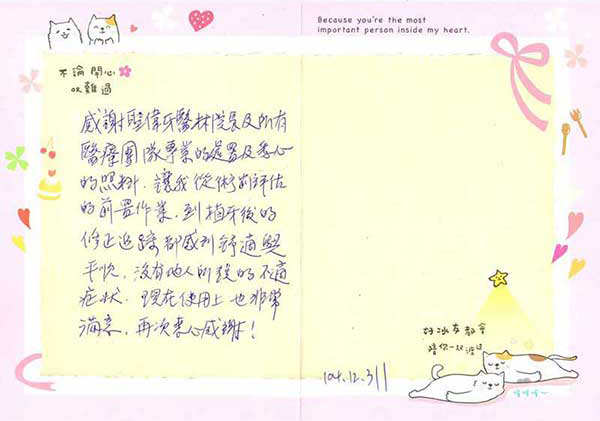 Because you're the most
important person inside my heart.
不論開心
或難過
感謝聖偉牙醫林院長及所有
醫療團隊專業的處置及悉心
的照料,讓我從術前評估
的前置作業,到植牙後的
修正追蹤都感到舒適與
平順,沒有他人所說的不適
症狀,現在使用上也非常
滿意,再次衷心感謝!
好朋友都會
陪你一起渡過
104.12.31